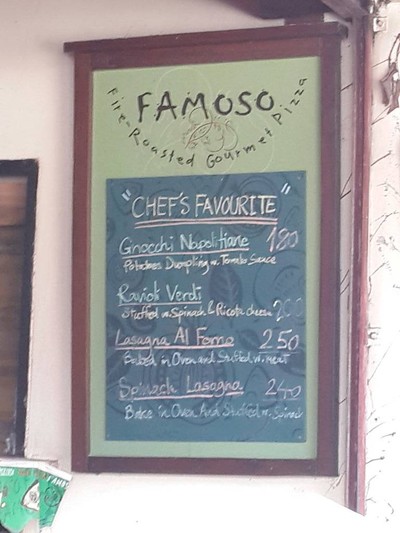 FAMOSO
Fire-Roasted Gourmet Pizza
"CHEF'S FAVOURITE"
Ginocchi Napolitiane 180
Potatoes Dumpling w. Tomato Sauce
Ravioli Verdi
Stuffed w. Spinach & Ricota cheese 200
Lasagna Al Forno 250
Baked in Oven and Stuffed w. meat
Spinach Lasagna 240
Bake in Oven And Stuffed w. Spinach